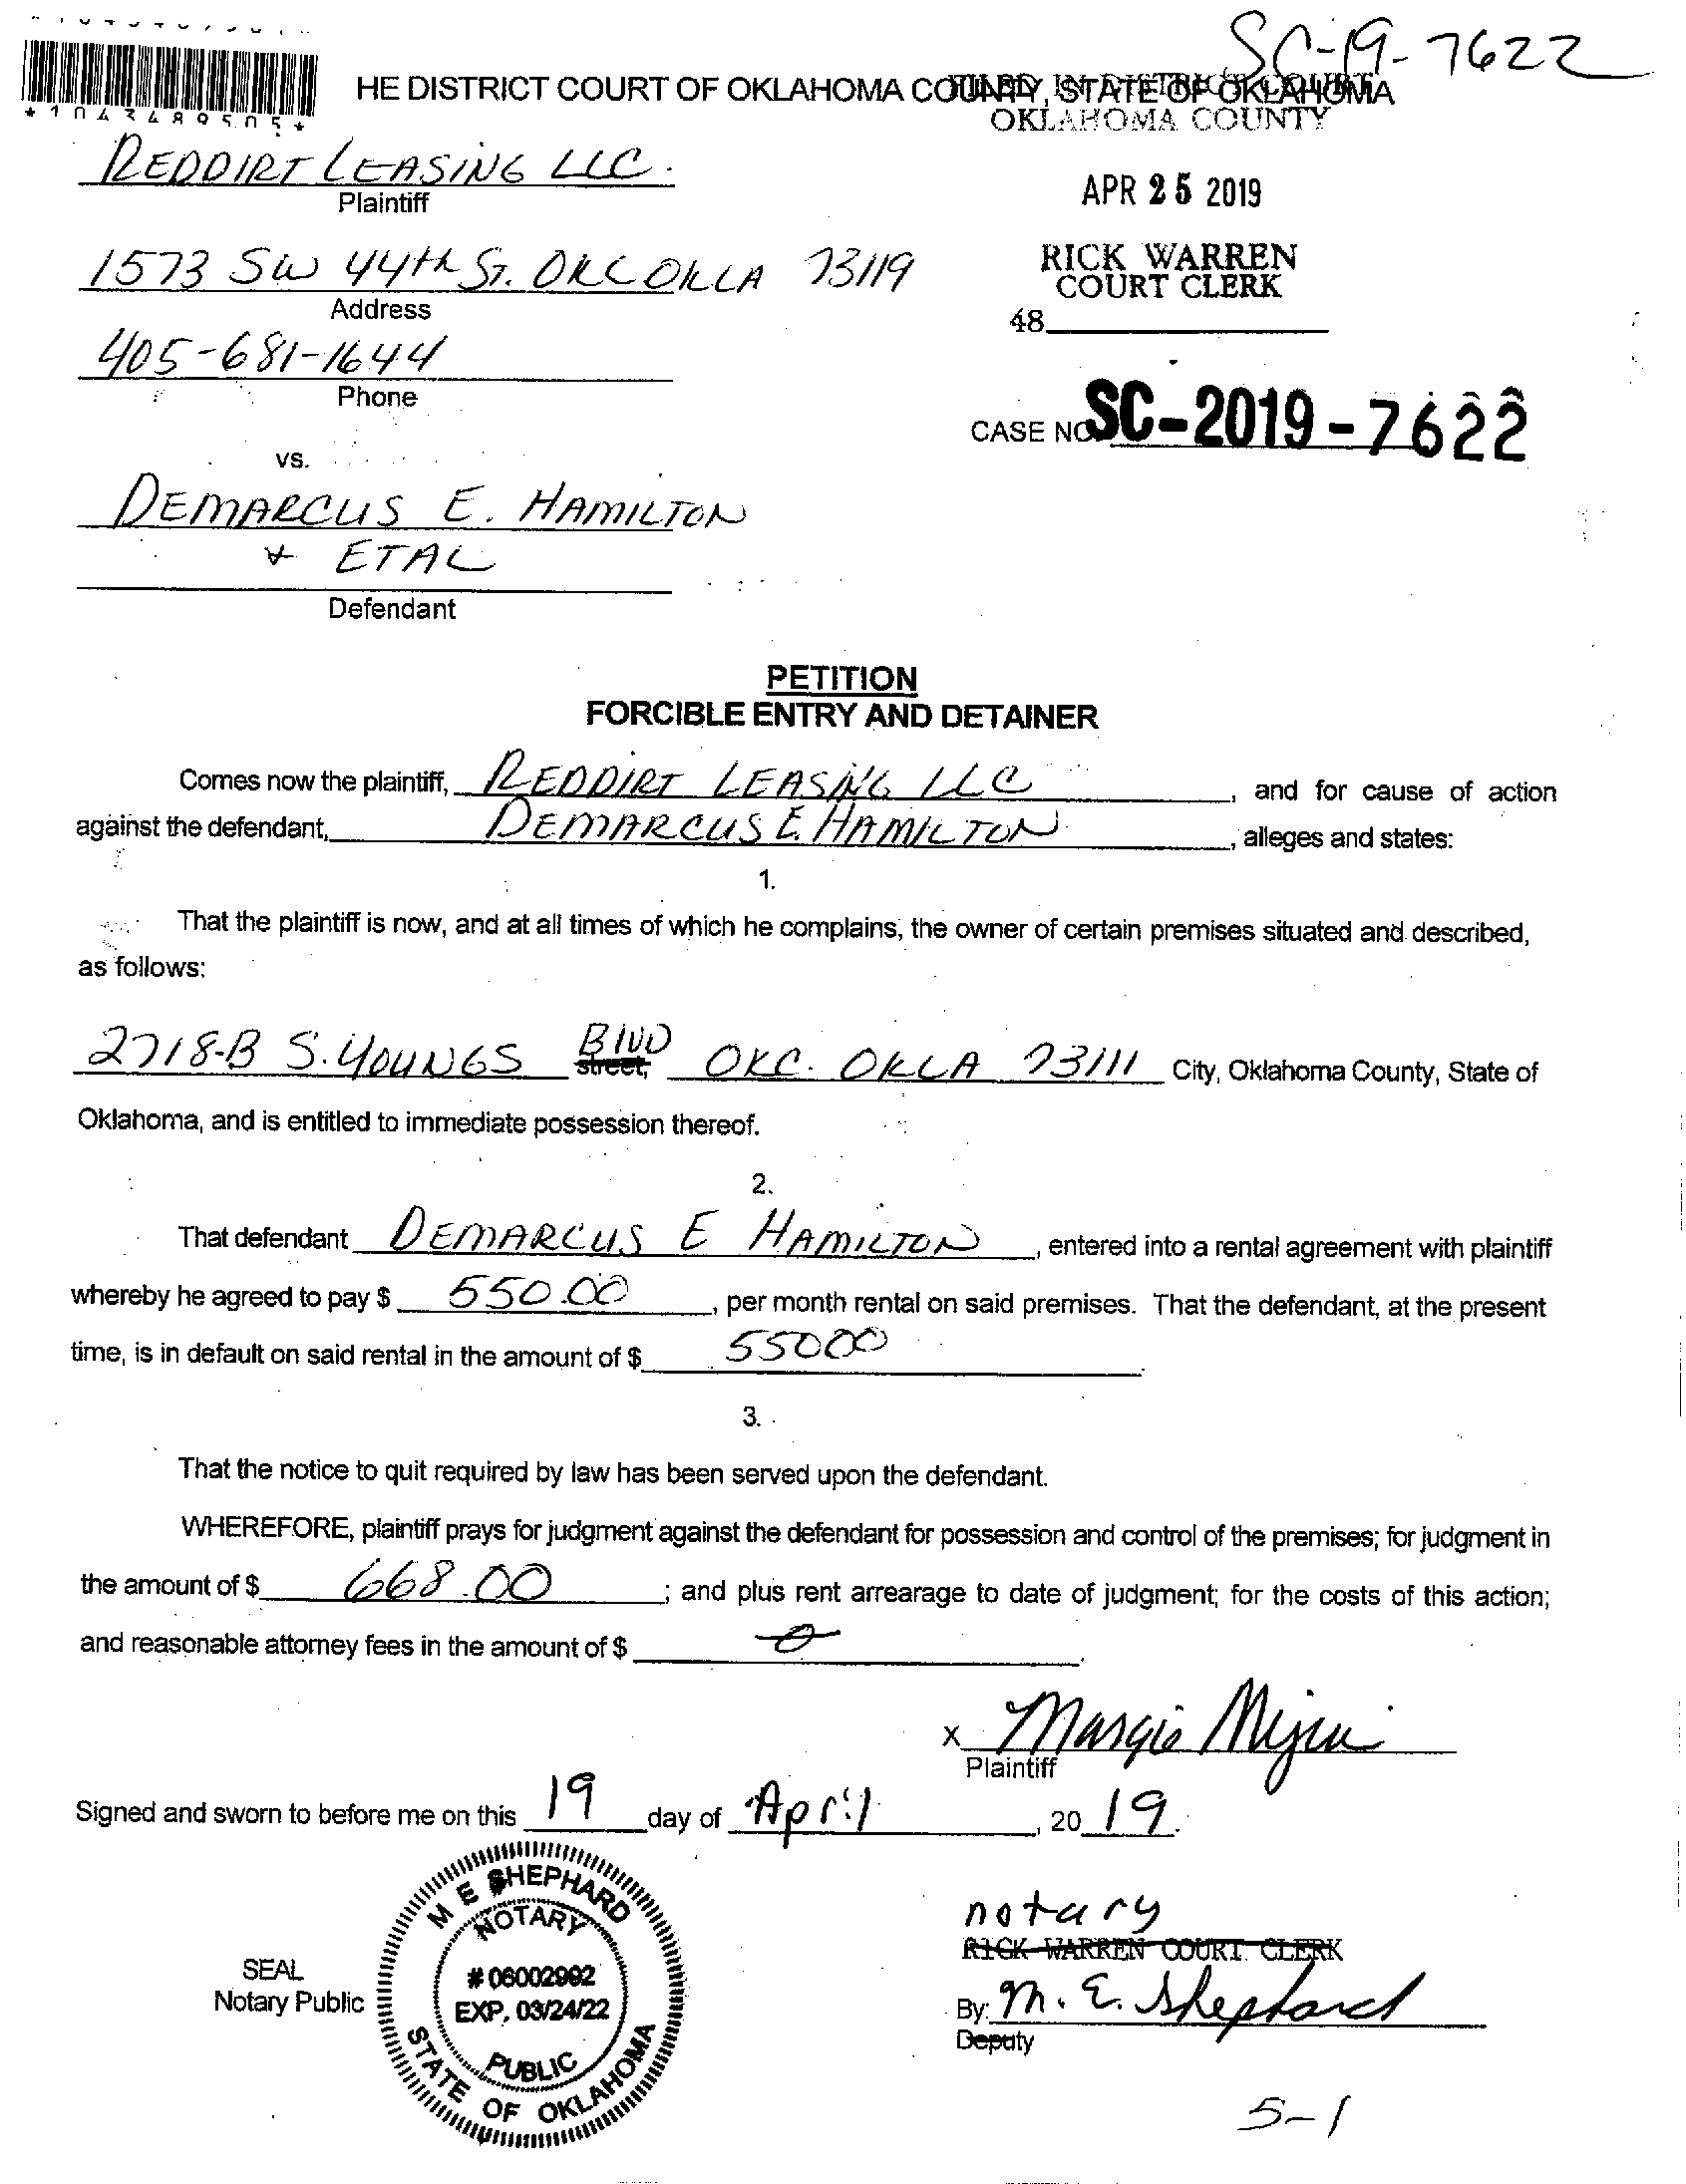 SC-19-7622
HE DISTRICT COURT OF OKLAHOMA COUNTY, STATE OF OKLAHOMA
FILED IN DISTRICT COURT
OKLAHOMA COUNTY
*1043489505*
REDDIRT LEASING LLC.
Plaintiff
APR 25 2019
1573 SW 44th ST. OKC OKLA 73119
Address
RICK WARREN
COURT CLERK
48
405-681-1644
Phone
CASE NO. SC-2019-7622
vs.
DEMARCUS E. HAMILTON
& ETAL
Defendant
PETITION
FORCIBLE ENTRY AND DETAINER
Comes now the plaintiff, REDDIRT LEASING LLC, and for cause of action
against the defendant, DEMARCUS E. HAMILTON, alleges and states:
1.
That the plaintiff is now, and at all times of which he complains, the owner of certain premises situated and described,
as follows:
2718-B S. YOUNGS street, BLVD OKC. OKLA 73111 City, Oklahoma County, State of
Oklahoma, and is entitled to immediate possession thereof.
2.
That defendant DEMARCUS E HAMILTON, entered into a rental agreement with plaintiff
whereby he agreed to pay $ 550.00, per month rental on said premises. That the defendant, at the present
time, is in default on said rental in the amount of $ 55000.
3.
That the notice to quit required by law has been served upon the defendant.
WHEREFORE, plaintiff prays for judgment against the defendant for possession and control of the premises; for judgment in
the amount of $ 668.00; and plus rent arrearage to date of judgment; for the costs of this action;
and reasonable attorney fees in the amount of $ 0.
X Margie
Plaintiff
Signed and sworn to before me on this 19 day of April, 2019.
M E SHEPHARD
NOTARY
# 06002992
EXP. 03/24/22
PUBLIC
STATE OF OKLAHOMA
SEAL
Notary Public
notary
RICK WARREN COURT CLERK
By: M. E. Shephard
Deputy
5-1